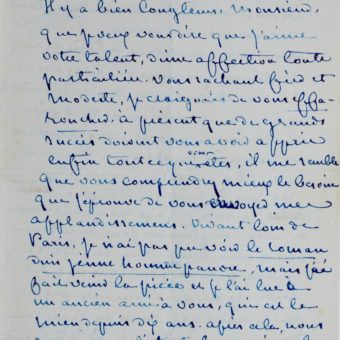 Il y a bien longtems, Monsieur,
que je veux vous dire que j'aime
votre talent, d'une affection toute
particulière. Vous sachant fier et
modeste, je craignais de vous effa-
roucher. à présent que de grands
succès doivent vous avoir appris
enfin tout ce que vous êtes, il me semble
que vous comprendrez mieux le besoin
que j'éprouve de vous envoyer mes
applaudissemens. Vivant loin de
Paris, je n'ai pas pu voir le roman
d'un jeune homme pauvre, mais j'ai
fait venir la pièce et je l'ai lue à
un ancien ami à vous, qui est le
mien depuis dix ans. après cela, nous